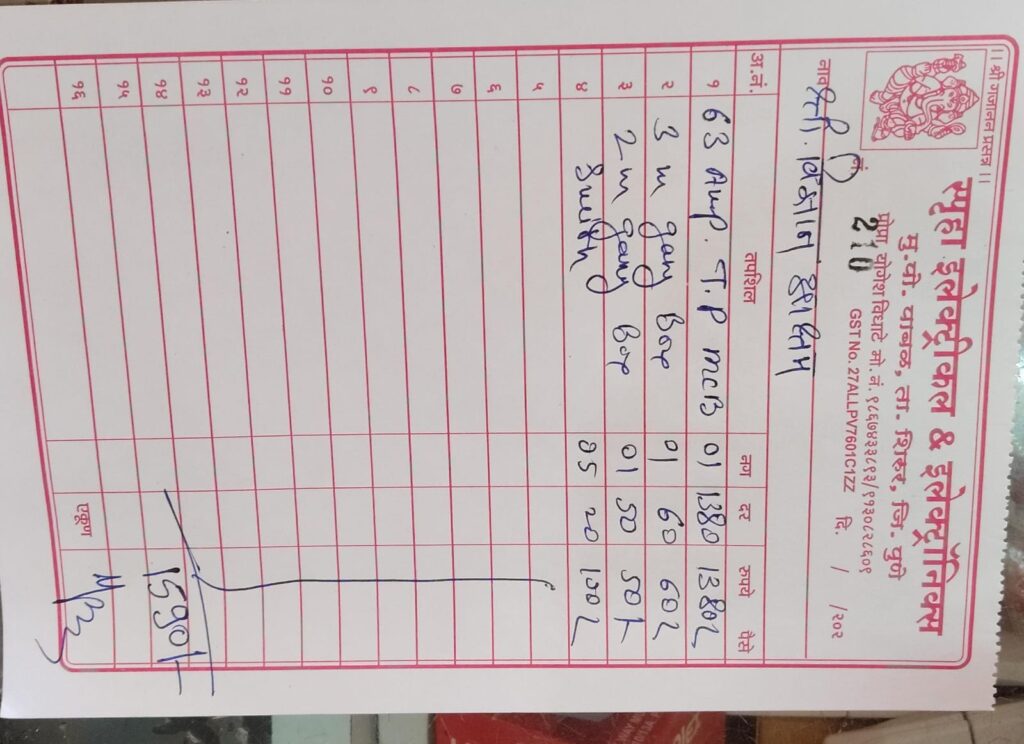 ।। श्री गजानन प्रसन्न ।।
स्पृहा इलेक्ट्रीकल & इलेक्ट्रॉनिक्स
मु. पो. पाबळ, ता. शिरूर, जि. पुणे
प्रोप्रा. योगेश विधाटे मो. नं.
नं. 210
GST No. 27ALLPV7601C1ZZ
दि. / /२०२
नाव श्री. विज्ञान आश्रम
अ.नं. तपशिल नग दर रुपये पैसे
१ 63 Amp. T.P MCB 01 1380 1380/-
२ 3 m gang Box 01 60 60/-
३ 2 m gang Box 01 50 50/-
४ 05 20 100/-
५
६
७
८
९
१०
११
१२
१३
१४ 1590/-
१५
१६ एकूण